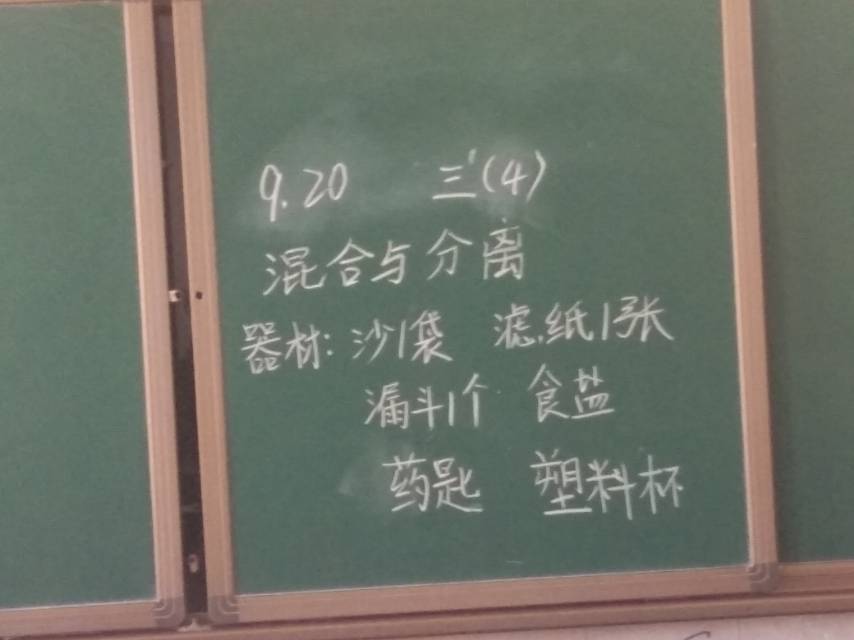 9.20 三(4)
混合与分离
器材:沙1袋 滤纸1张
漏斗1个 食盐
药匙 塑料杯